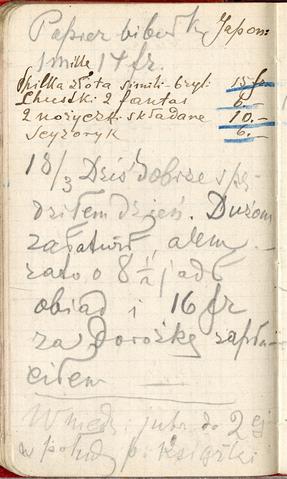 Papier bibułk. Japon:
1 mille 14 fr.
Szpilka złota simili-bryl: 15 fr
Chustki 2 fantas 6.–
2 nożyczki składane 10.–
Scyzoryk 6.–
18/3 Dziś dobrze spę-
dziłem dzień. Dużom
załatwił, alem
zato o 8½ jadł
obiad i 16 fr
za dorożkę zapła-
ciłem
W niedz. jutr. do 2 ej
w po książki